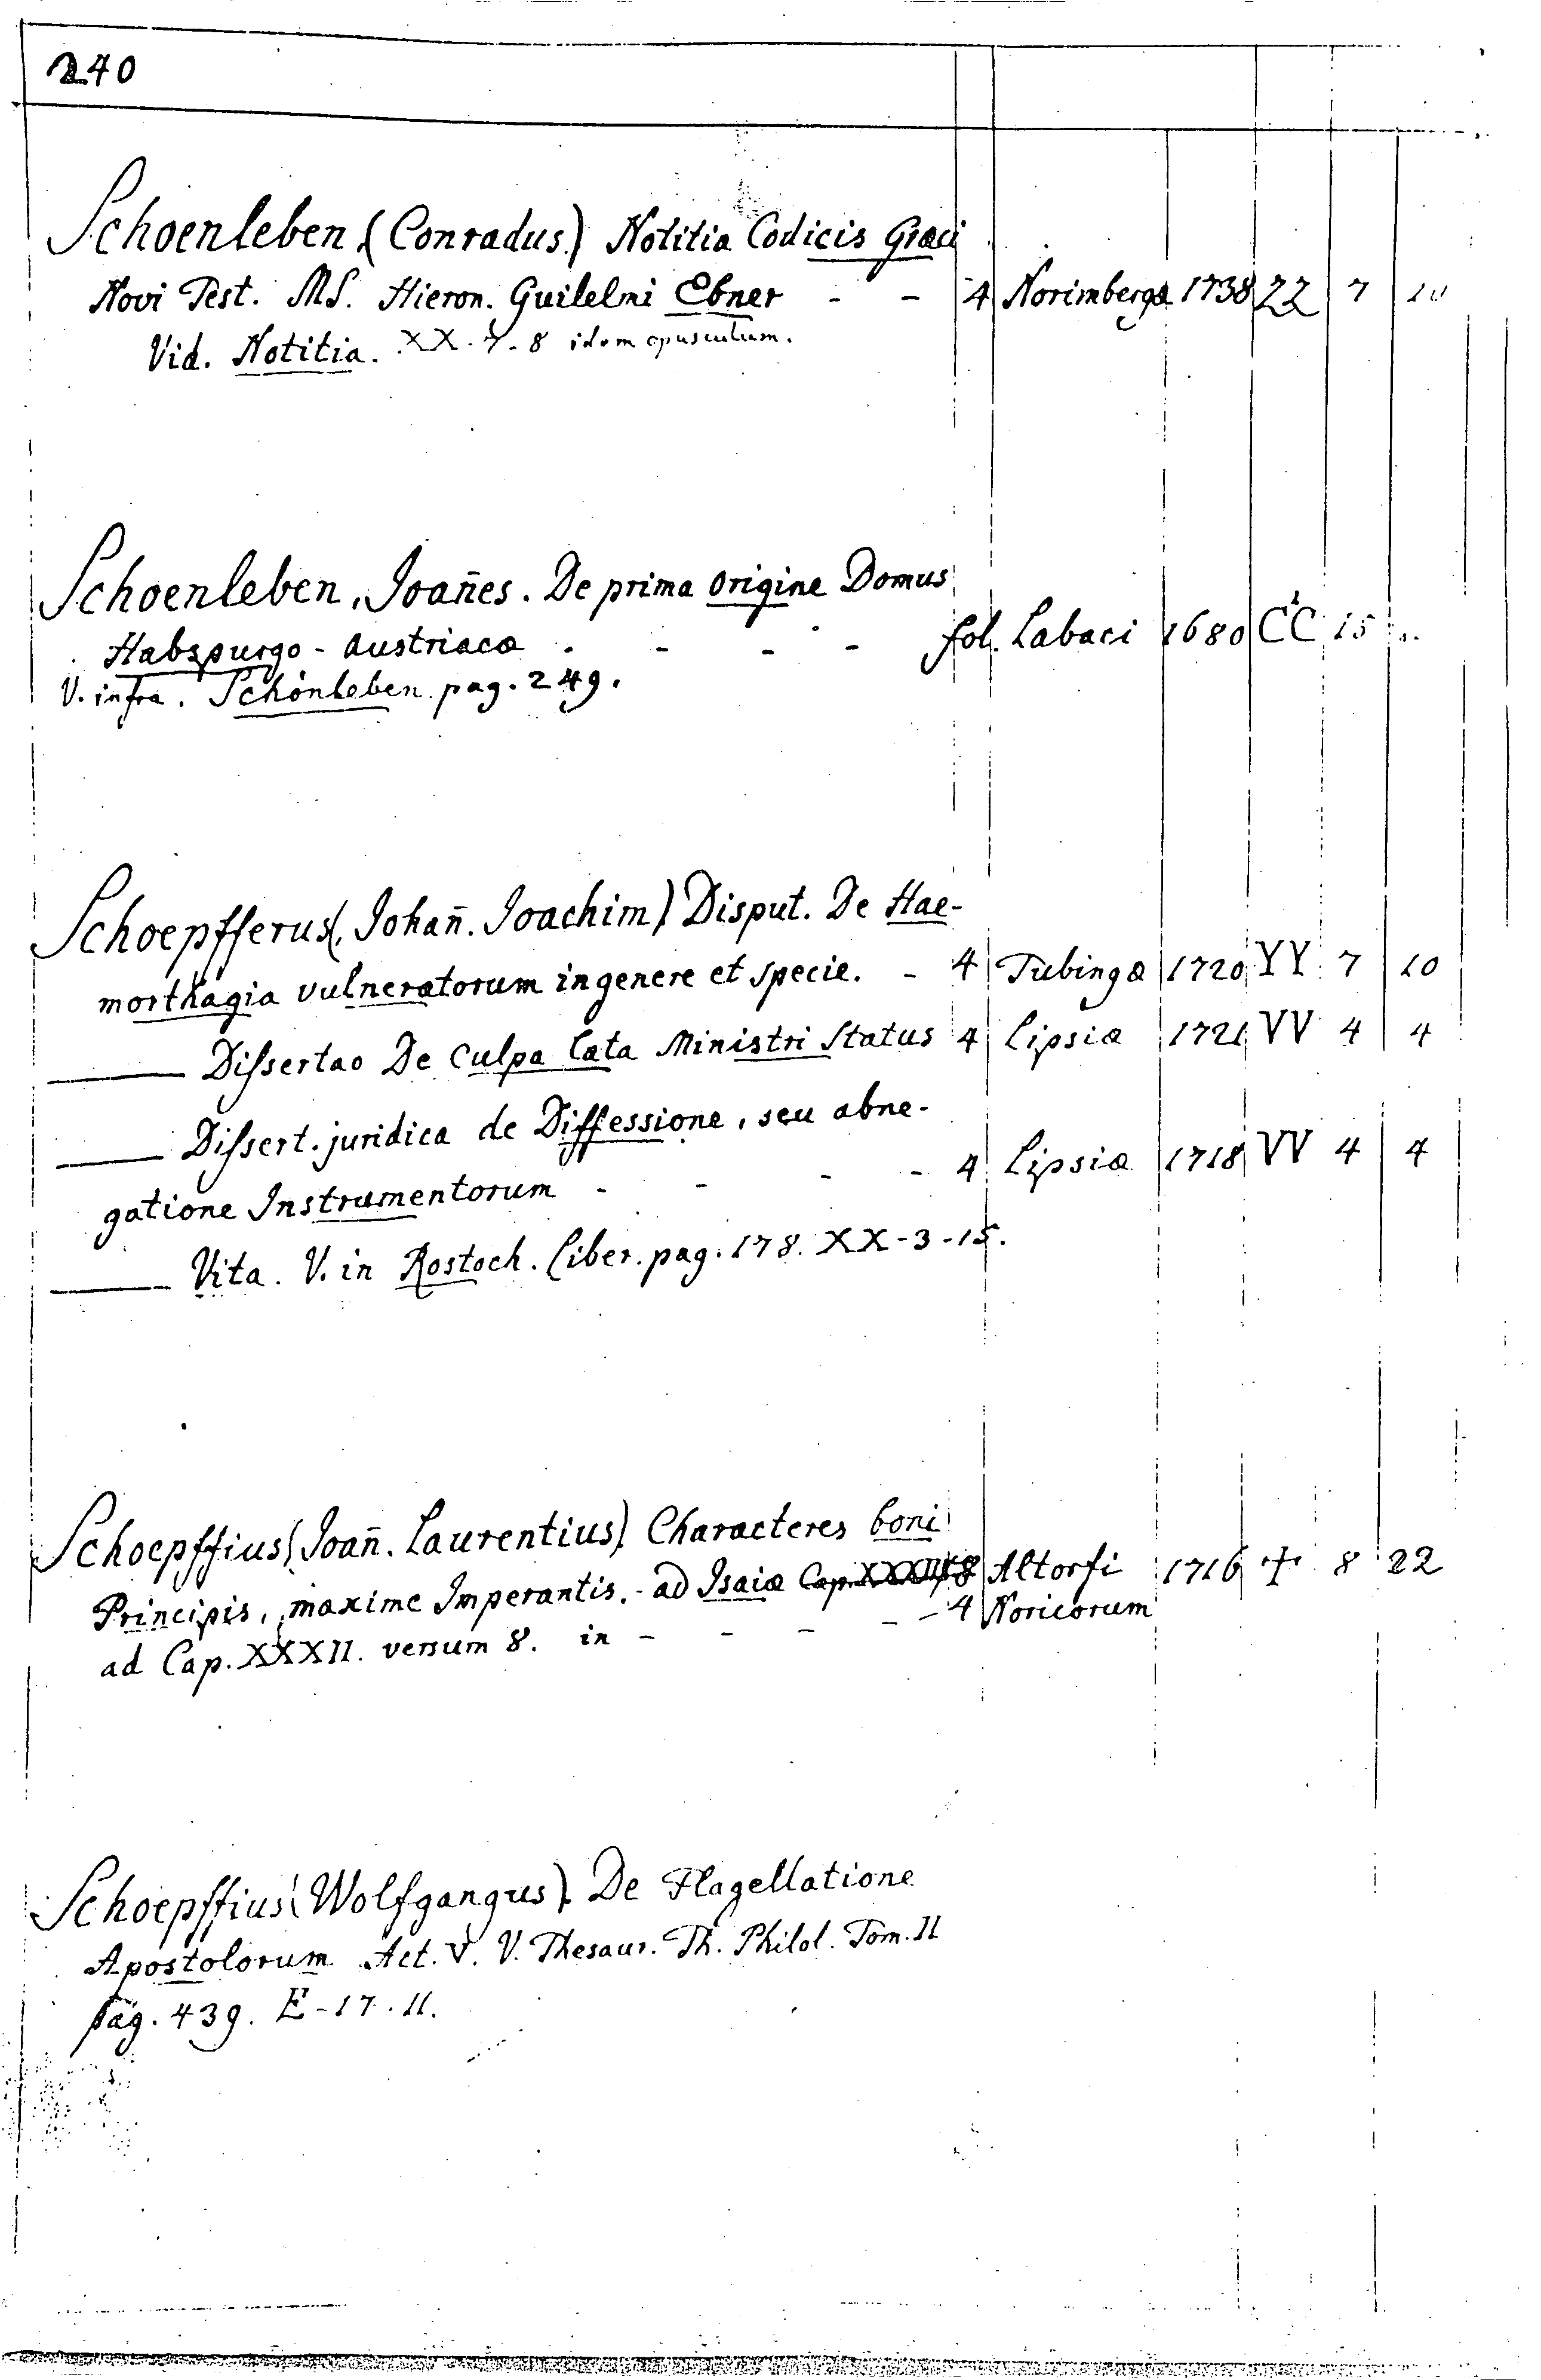 240
Schoenleben (Conradus) Notitia Codicis Græci
Novi Test. MS. Hieron. Guilelmi Ebner - - 4 Norimbergæ 1738 ZZ 7 10
Vid. Notitia. XX. 7. 8 idem opusculum.
Schoenleben, Joan̄es. De prima origine Domus
Habspurgo - Austriacæ - - - - fol. Labaci 1680 CC 15
V. infra. Schönleben pag. 249.
Schoepfferus (Johan̄. Joachim) Disput. De Hae-
morrhagia vulneratorum in genere et specie. - 4 Tubingæ 1720 YY 7 10
——— Dissertao De Culpa Lata Ministri Status 4 Lipsiæ 1721 VV 4 4
——— Dissert. juridica de Diffessione, seu abne-
gatione Instrumentorum - - - - 4 Lipsiæ 1718 VV 4 4
——— Vita. V. in Rostoch. Liber. pag. 178. XX-3-15.
Schoepffius (Joan̄. Laurentius) Characteres boni
Principis, maxime Imperantis. - ad Isaiæ Cap. Altorfi 1716 8 22
ad Cap. XXXII. versum 8. in - - - - - 4 Noricorum
Schoepffius (Wolfgangus) De Flagellatione
Apostolorum Act. V. V. Thesaur. Th. Philol. Tom. II
pag. 439. E-17.11.